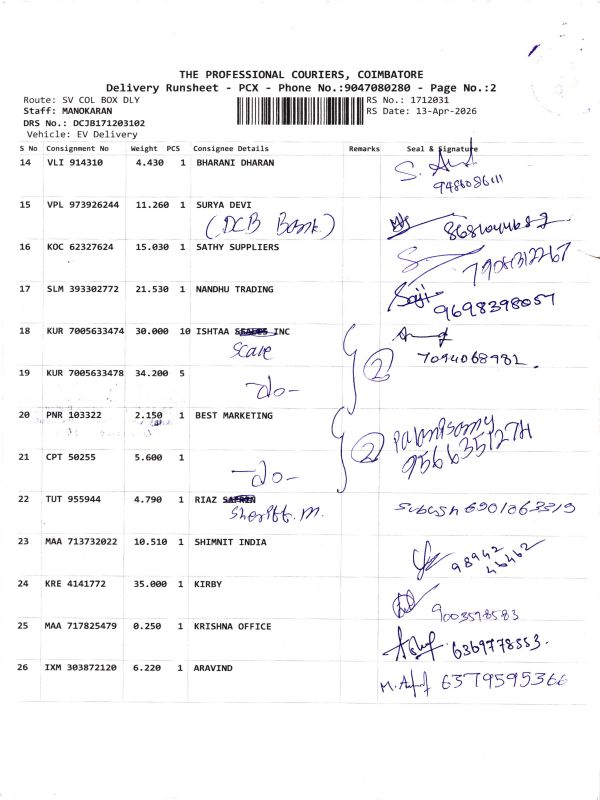 THE PROFESSIONAL COURIERS, COIMBATORE
Delivery Runsheet - PCX - Phone No.:9047080280 - Page No.:2
Route: SV COL BOX DLY RS No.: 1712031
Staff: MANOKARAN RS Date: 13-Apr-2026
DRS No.: DCJB171203102
Vehicle: EV Delivery
S No Consignment No Weight PCS Consignee Details Remarks Seal & Signature
14 VLI 914310 4.430 1 BHARANI DHARAN
15 VPL 973926244 11.260 1 SURYA DEVI
(DCB Bank)
16 KOC 62327624 15.030 1 SATHY SUPPLIERS
17 SLM 393302772 21.530 1 NANDHU TRADING
Saji 9698398057
18 KUR 7005633474 30.000 10 ISHTAA INC
Scave 2 7094068982.
19 KUR 7005633478 34.200 5
-do-
20 PNR 103322 2.150 1 BEST MARKETING
2 Palanisamy
9566351274
21 CPT 50255 5.600 1
-do-
22 TUT 955944 4.790 1 RIAZ SAFRIN
Sheriff. M.
23 MAA 713732022 10.510 1 SHIMNIT INDIA
98942
46462
24 KRE 4141772 35.000 1 KIRBY
9003578583
25 MAA 717825479 0.250 1 KRISHNA OFFICE
6369778553.
26 IXM 303872120 6.220 1 ARAVIND
6379595366